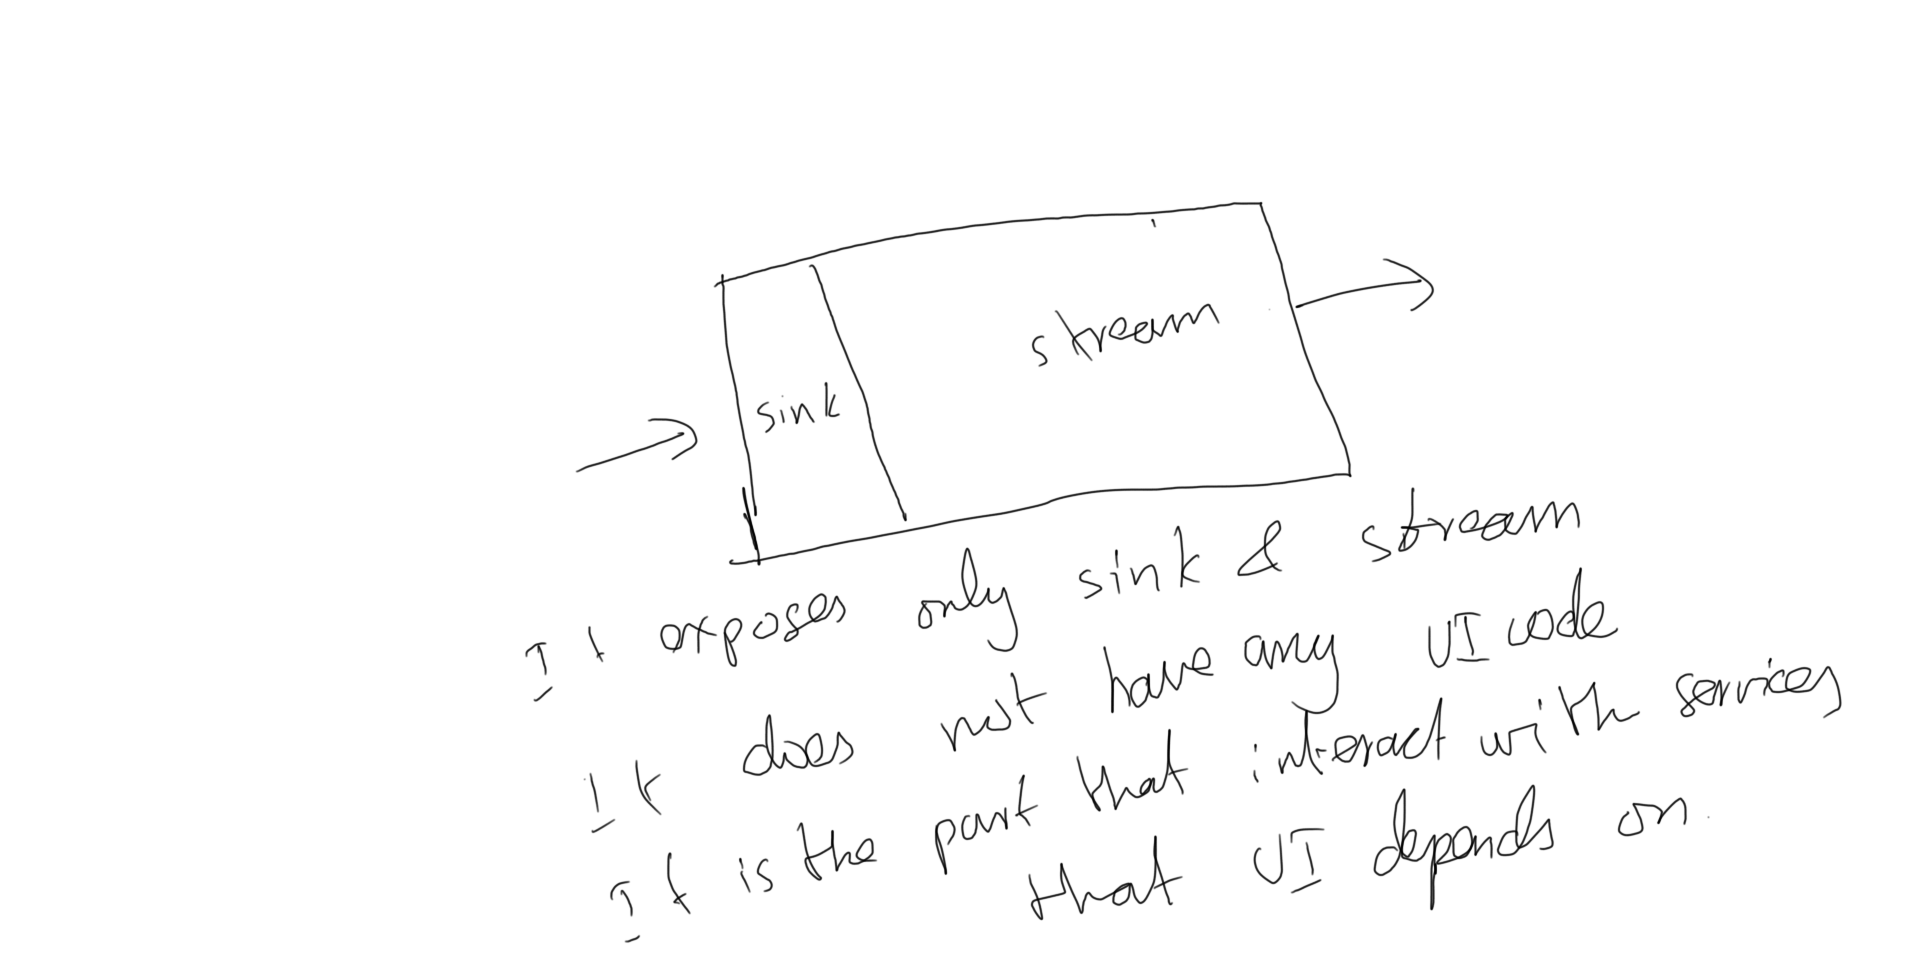 stream
sink
It exposes only sink & stream
It does not have any UI code
It is the part that interact with services
that UI depends on